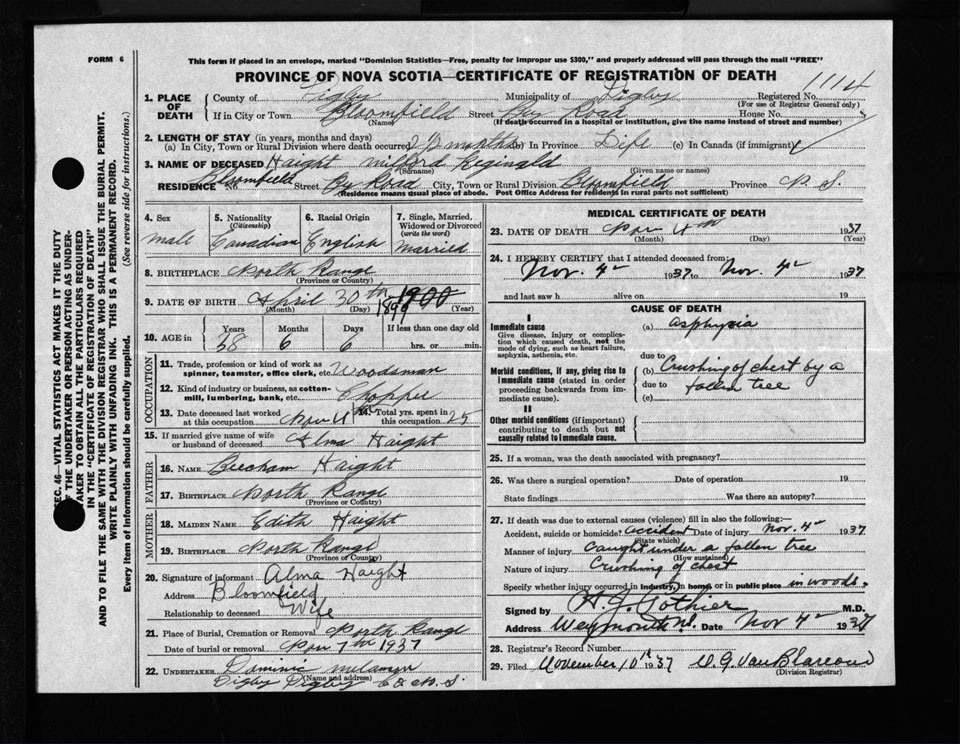 FORM 6
This form if placed in an envelope, marked "Dominion Statistics—Free, penalty for improper use $300," and properly addressed will pass through the mail "FREE"
PROVINCE OF NOVA SCOTIA—CERTIFICATE OF REGISTRATION OF DEATH
1114
1. PLACE OF DEATH { County of Digby Municipality of Digby Registered No.
(For use of Registrar General only)
If in City or Town Bloomfield Street By Road House No.
(Name) (If death occurred in a hospital or institution, give the name instead of street and number)
2. LENGTH OF STAY (in years, months and days)
(a) In City, Town or Rural Division where death occurred months (b) In Province Life (c) In Canada (if immigrant)
3. NAME OF DECEASED Haight Milford Reginald
(Surname) (Given name or names)
RESIDENCE No. Bloomfield Street By Road City, Town or Rural Division Bloomfield Province N. S.
(Residence means usual place of abode. Post Office Address for residents in rural parts not sufficient)
4. Sex Male
5. Nationality (Citizenship) Canadian
6. Racial Origin English
7. Single, Married, Widowed or Divorced (write the word) Married
8. BIRTHPLACE North Range
(Province or Country)
9. DATE OF BIRTH April 30th 1900 1899
(Month) (Day) (Year)
10. AGE in { Years 38 Months 6 Days 6 If less than one day old
hrs. or min.
OCCUPATION
11. Trade, profession or kind of work as spinner, teamster, office clerk, etc. Woodsman
12. Kind of industry or business, as cotton-mill, lumbering, bank, etc. Chopper
13. Date deceased last worked at this occupation Nov 4th 14. Total yrs. spent in this occupation 25
15. If married give name of wife or husband of deceased Alma Haight
FATHER
16. NAME Beecham Haight
17. BIRTHPLACE North Range
(Province or Country)
MOTHER
18. MAIDEN NAME Edith Haight
19. BIRTHPLACE North Range
(Province or Country)
20. Signature of informant Alma Haight
Address Bloomfield
Relationship to deceased Wife
21. Place of Burial, Cremation or Removal North Range
Date of burial or removal Nov 7th 1937
22. UNDERTAKER Dominic
(Name and address)
Digby Digby Co N. S.
MEDICAL CERTIFICATE OF DEATH
23. DATE OF DEATH Nov 4th 1937
(Month) (Day) (Year)
24. I HEREBY CERTIFY that I attended deceased from:
Nov. 4th 1937 to Nov. 4th 1937
and last saw h alive on 19
CAUSE OF DEATH
I
Immediate cause
Give disease, injury or complication which caused death, not the mode of dying, such as heart failure, asphyxia, asthenia, etc.
(a) asphyxia
due to
Morbid conditions, if any, giving rise to immediate cause (stated in order proceeding backwards from immediate cause).
(b) Crushing of chest by a
due to fallen tree
(c)
II
Other morbid conditions (if important) contributing to death but not causally related to immediate cause.
25. If a woman, was the death associated with pregnancy?
26. Was there a surgical operation? Date of operation 19
State findings Was there an autopsy?
27. If death was due to external causes (violence) fill in also the following:—
Accident, suicide or homicide? accident Date of injury Nov. 4th 1937
(State which)
Manner of injury Caught under a fallen tree
(How sustained)
Nature of injury Crushing of chest
Specify whether injury occurred in industry, in home, or in public place in woods.
Signed by H. J. Pothier M.D.
Address Weymouth N.S. Date Nov 4th 1937
28. Registrar's Record Number
29. Filed November 10th 1937 W. G. VanBlarcom
(Division Registrar)
SEC. 46—VITAL STATISTICS ACT MAKES IT THE DUTY
OF THE UNDERTAKER OR PERSON ACTING AS UNDER-
TAKER TO OBTAIN ALL THE PARTICULARS REQUIRED
IN THE "CERTIFICATE OF REGISTRATION OF DEATH"
AND TO FILE THE SAME WITH THE DIVISION REGISTRAR WHO SHALL ISSUE THE BURIAL PERMIT.
WRITE PLAINLY WITH UNFADING INK. THIS IS A PERMANENT RECORD.
Every item of information should be carefully supplied. (See reverse side for instructions.)